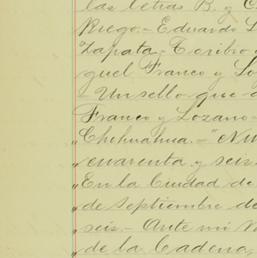 las letras B. y C
Riego.- Eduardo L
Zapata.- Toribio
guel Franco y Lo
- Un sello que d
Franco y Lozano-
Chihuahua.- "Nú
„cuarenta y seis
„En la Ciudad de
„de Septiembre de
„seis.- Ante mí
„de la Cadena,